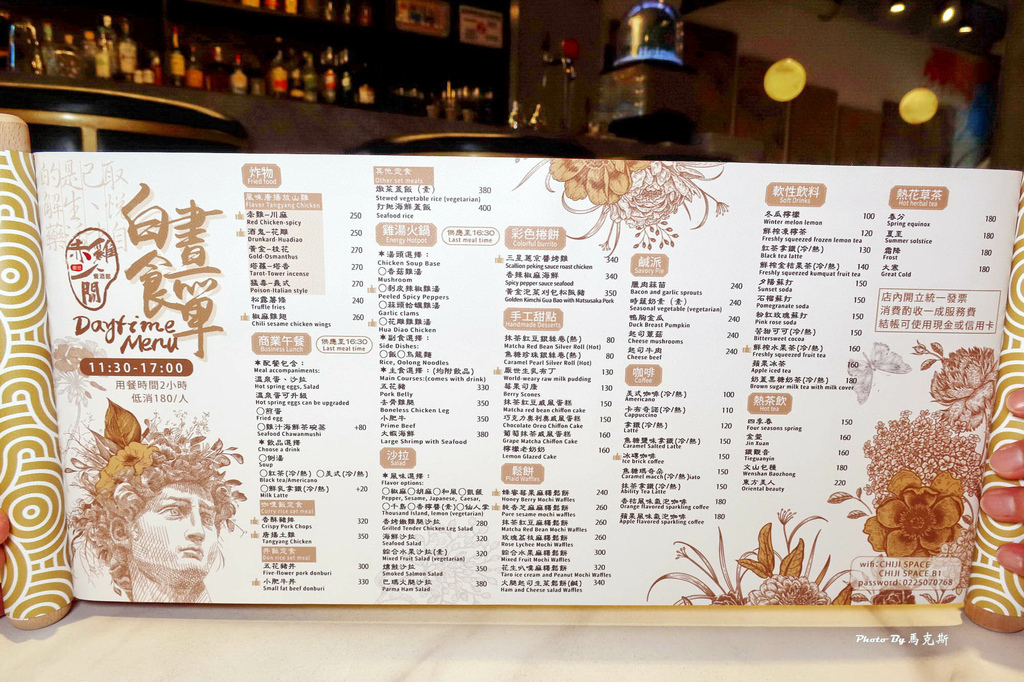 白晝食單
Daytime Menu
11:30-17:00
用餐時間2小時
低消180/人
炸物
Fried food
風味唐揚放山雞
Flavor Tangyang Chicken
牽雞-川麻 250
Red Chicken-spicy
酒鬼-花雕 250
Drunkard-Huadiao
黃金-桂花 270
Gold-Osmanthus
塔羅-塔香 270
Tarot-Tower incense
猛毒-義式 270
Poison-Italian style
松露薯條 240
Truffle fries
椒麻雞翅 260
Chili sesame chicken wings
商業午餐
Business Lunch
供應至16:30
Last meal time
＊配餐包含：
Meal accompaniments:
溫泉蛋、沙拉
Hot spring eggs, Salad
溫泉蛋可升級
Hot spring eggs can be upgraded
〇煎蛋
Fried egg
〇雞汁海鮮茶碗蒸 +80
Seafood Chawanmushi
＊飲品選擇
Choose a drink
〇例湯
Soup
〇紅茶(冷/熱) 〇美式(冷/熱)
Black tea/Americano
〇鮮乳拿鐵(冷/熱) +20
Milk Latte
咖哩飯定食
Curry rice set meal
香酥豬排 320
Crispy Pork Chops
唐揚土雞 350
Tangyang Chicken
丼飯定食
Don rice set meal
五花豬丼 300
Five flower pork donburi
小肥牛丼 330
Small fat beef donburi
其他定食
Other set meals
燉菜蓋飯（素） 380
Stewed vegetable rice (vegetarian)
打拋海鮮蓋飯 400
Seafood rice
雞湯火鍋
Energy Hotpot
供應至16:30
Last meal time
＊湯頭選擇：
Chicken Soup Base
〇香菇雞湯
Mushroom
〇剝皮辣椒雞湯
Peeled Spicy Peppers
〇蒜頭蛤蠣雞湯
Garlic clams
〇花雕雞雞湯
Hua Diao Chicken
＊副食選擇：
Side Dishes:
〇飯〇烏龍麵
Rice, Oolong Noodles
＊主食選擇：(均附飲品)
Main Courses:(comes with drink)
五花豬 330
Pork Belly
去骨雞腿 350
Boneless Chicken Leg
小肥牛 350
Prime Beef
大蝦海鮮 380
Large Shrimp with Seafood
沙拉
Salad
＊風味選擇：
Flavor options:
〇椒麻〇胡麻〇和風〇凱薩
Pepper, Sesame, Japanese, Caesar,
〇千島〇香檸薏(素)〇仙人掌
Thousand Island, lemon (vegetarian)
香烤嫩雞腿沙拉 280
Grilled Tender Chicken Leg Salad
海鮮沙拉 350
Seafood Salad
綜合水果沙拉(素) 320
Mixed Fruit Salad (vegetarian)
燻鮭沙拉 350
Smoked Salmon Salad
巴瑪火腿沙拉 380
Parma Ham Salad
彩色捲餅
Colorful burrito
三星蔥京醬烤雞 340
Scallion peking sauce roast chicken
香辣椒麻海鮮 340
Spicy pepper sauce seafood
黃金泡菜刈包松阪豬 340
Golden Kimchi Gua Bao with Matsusaka Pork
手工甜點
Handmade Desserts
抹茶紅豆銀絲卷(熱) 80
Matcha Red Bean Silver Roll (Hot)
焦糖珍珠銀絲卷(熱) 80
Caramel Pearl Silver Roll (Hot)
厭世生乳布丁 130
World-weary raw milk pudding
莓果司康 130
Berry Scones
抹茶紅豆戚風蛋糕 150
Matcha red bean chiffon cake
巧克力奧利奧戚風蛋糕 150
Chocolate Oreo Chiffon Cake
葡萄抹茶戚風蛋糕 150
Grape Matcha Chiffon Cake
檸檬老奶奶 160
Lemon Glazed Cake
鬆餅
Plaid Waffles
蜂蜜莓果麻糬鬆餅 240
Honey Berry Mochi Waffles
純杏芝麻麻糬鬆餅 260
Pure sesame mochi waffles
抹茶紅豆麻糬鬆餅 260
Matcha Red Bean Mochi Waffles
玫瑰荔枝麻糬鬆餅 260
Rose Lychee Mochi Waffles
綜合水果麻糬鬆餅 300
Mixed Fruit Mochi Waffles
花生叭噗麻糬鬆餅 320
Taro ice cream and Peanut Mochi Waffles
火腿起司生菜鬆餅(鹹) 340
Ham and Cheese salad Waffles
鹹派
Savory Pie
臘肉蒜苗 240
Bacon and garlic sprouts
時蔬奶素（素） 240
Seasonal vegetable (vegetarian)
鴨胸金瓜 240
Duck Breast Pumpkin
起司蕈菇 240
Cheese mushrooms
起司牛肉 240
Cheese beef
咖啡
Coffee
美式咖啡(冷/熱) 100
Americano
卡布奇諾(冷/熱) 110
Cappuccino
拿鐵(冷/熱) 120
Latte
焦糖鹽味拿鐵(冷/熱) 150
Caramel Salted Latte
冰磚咖啡 150
Ice brick coffee
焦糖瑪奇朵 150
Caramel macch(冷/熱)iato
抹茶拿鐵(冷/熱) 150
Ability Tea Latte
香桔風味氣泡咖啡 180
Orange flavored sparkling coffee
蘋果風味氣泡咖啡 180
Apple flavored sparkling coffee
軟性飲料
Soft Drinks
冬瓜檸檬 100
Winter melon lemon
鮮榨凍檸茶 120
Freshly squeezed frozen lemon tea
紅茶拿鐵(冷/熱) 130
Black tea latte
鮮榨金桔果茶(冷/熱) 140
Freshly squeezed kumquat fruit tea
夕陽蘇打 150
Sunset soda
石榴蘇打 150
Pomegranate soda
粉紅玫瑰蘇打 150
Pink rose soda
苦甜可可(冷/熱) 150
Bittersweet cocoa
鮮榨水果茶(冷/熱) 160
Freshly squeezed fruit tea
蘋果冰茶 160
Apple iced tea
奶蓋黑糖奶茶(冷/熱) 180
Brown sugar milk tea with milk cover
熱茶飲
Hot tea
四季春 150
Four seasons spring
金萱 150
Jin Xuan
鐵觀音 160
Tieguanyin
文山包種 180
Wenshan Baozhong
東方美人 220
Oriental beauty
熱花草茶
Hot herbal tea
春分 180
Spring equinox
夏至 180
Summer solstice
霜降 180
Frost
大寒 180
Great Cold
店內開立統一發票
消費酌收一成服務費
結帳可使用現金或信用卡
wifi:CHIJI SPACE
CHIJI SPACE B1
password:0225070768
Photo By 馬克斯